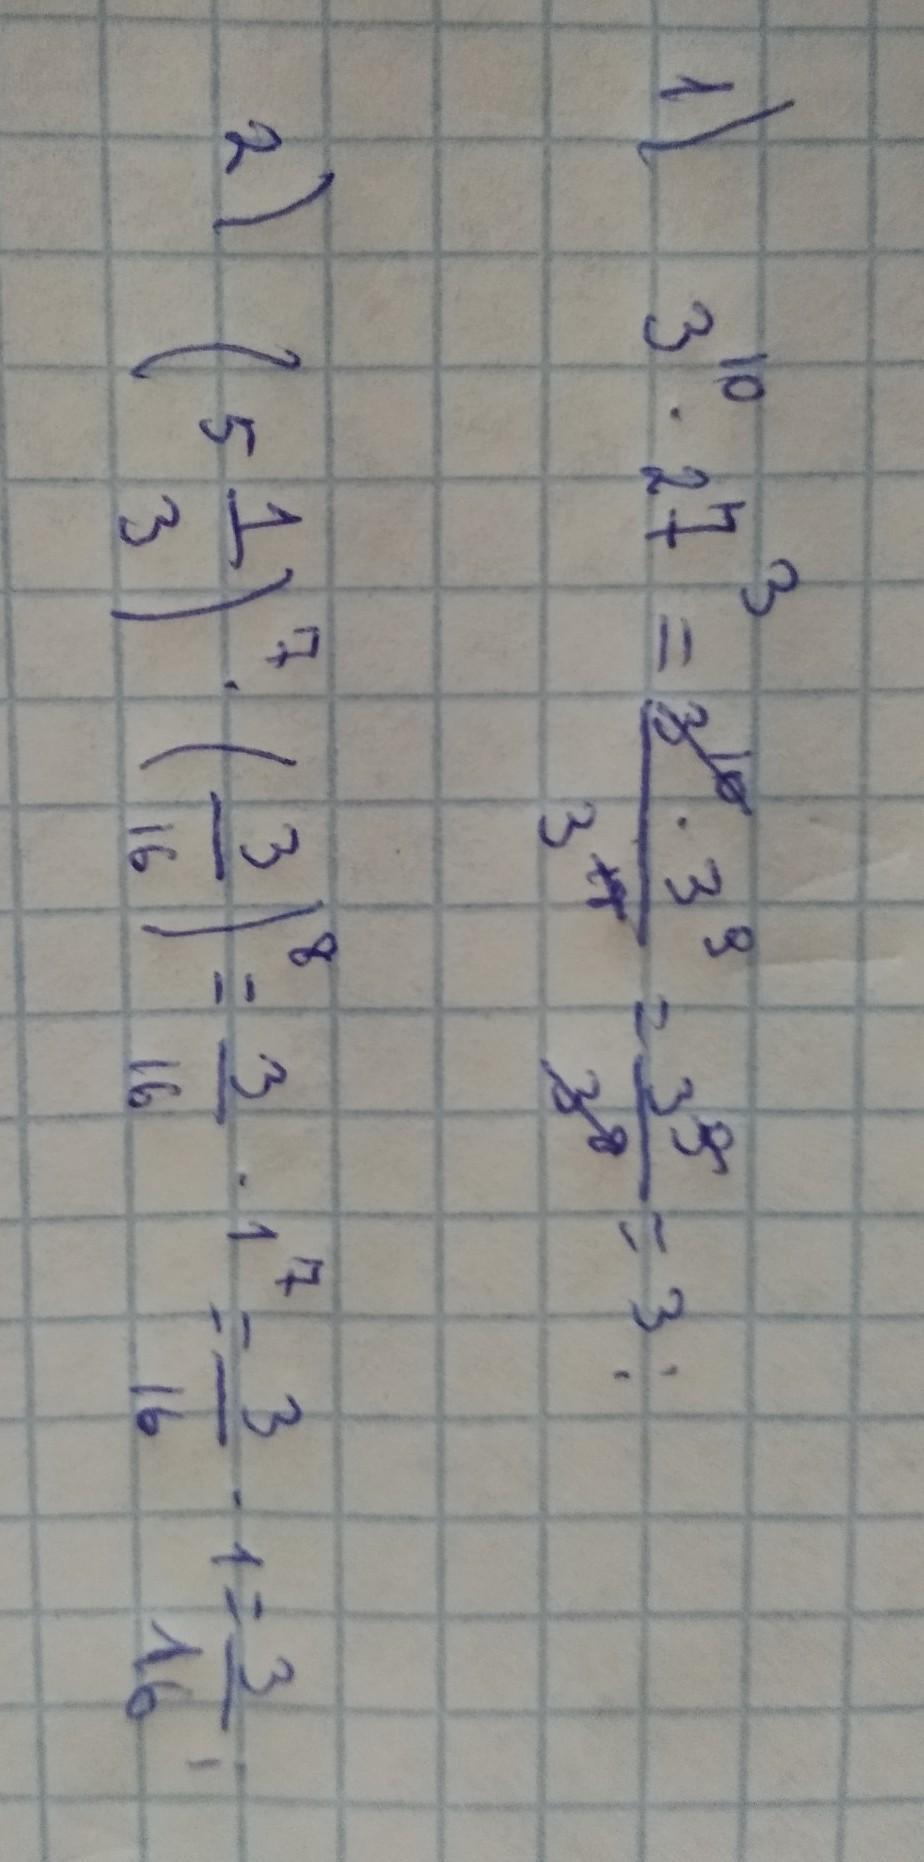 1) 3^10 · 27^3 = (3^10 · 3^9)/(3^18) = 3^9/3^8 = 3;
2) (5 1/3)^7 · (3/16)^8 = 3/16 · 1^7 = 3/16 · 1 = 3/16;